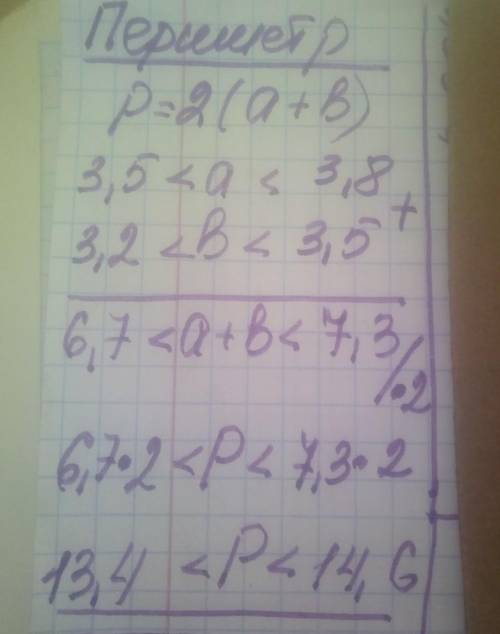 Периметр
P=2(a+b)
3,5 < a < 3,8
+
3,2 < b < 3,5
6,7 < a+b < 7,3
/·2
6,7·2 < P < 7,3·2
13,4 < P < 14,6